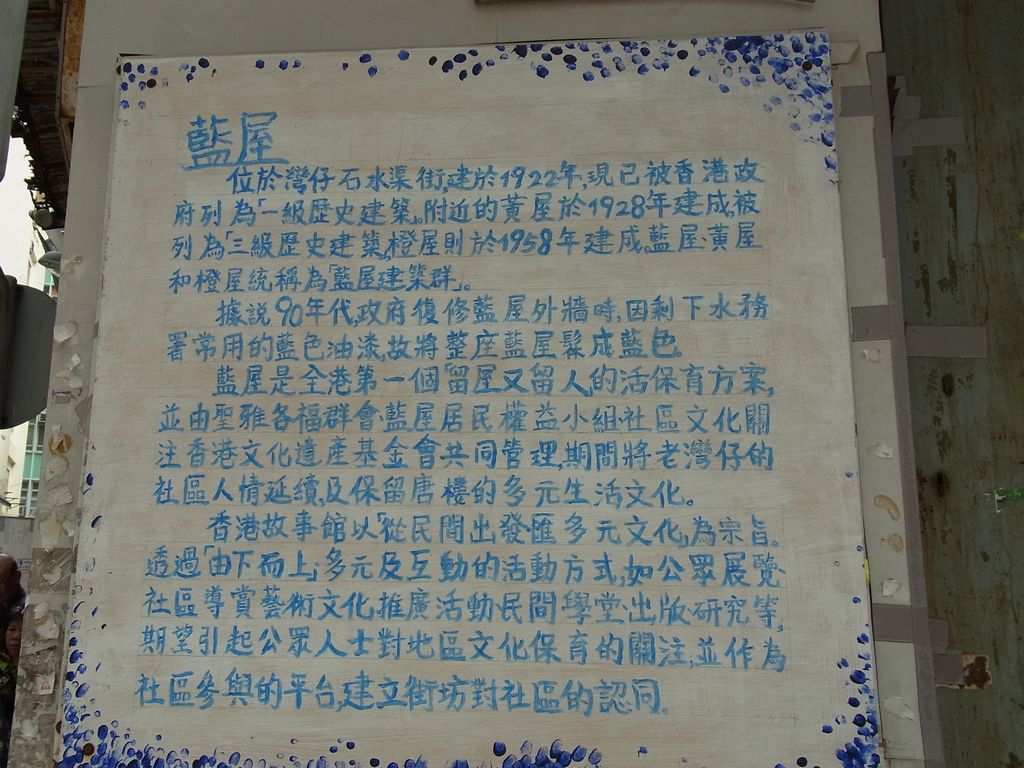 藍屋
位於灣仔石水渠街,建於1922年,現已被香港政
府列為「一級歷史建築」。附近的黃屋於1928年建成,被
列為「三級歷史建築,橙屋則於1958年建成。藍屋,黃屋
和橙屋統稱為「藍屋建築群」。
據說90年代,政府復修藍屋外牆時,因剩下水務
署常用的藍色油漆,故將整座藍屋髹成藍色。
藍屋是全港第一個留屋又留人的活保育方案,
並由聖雅各福群會.藍屋居民權益小組.社區文化關
注香港文化遺產基金會共同管理,期間將老灣仔的
社區人情延續,及保留唐樓的多元生活文化。
香港故事館以「從民間出發匯多元文化」為宗旨。
透過「由下而上」多元及互動的活動方式,如公眾展覽
社區導賞藝術文化推廣活動民間學堂.出版研究等,
期望引起公眾人士對地區文化保育的關注,並作為
社區參與的平台,建立街坊對社區的認同。